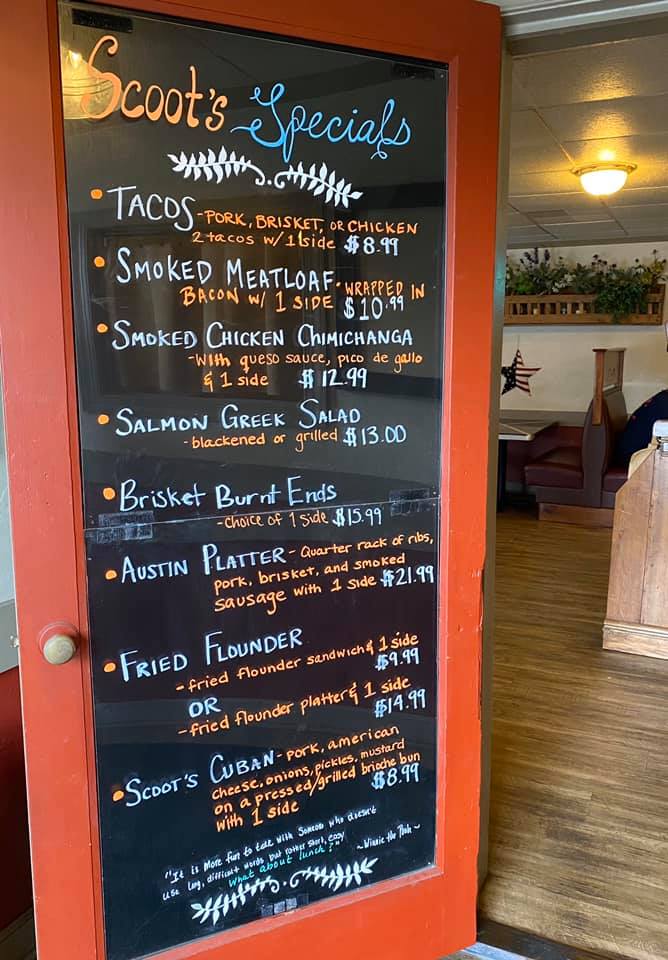 Scoot's Specials
• TACOS - PORK, BRISKET, OR CHICKEN
2 tacos w/ 1 side $8.99
• SMOKED MEATLOAF • WRAPPED IN
BACON W/ 1 SIDE $10.99
• SMOKED CHICKEN CHIMICHANGA
- with queso sauce, pico de gallo
& 1 side $12.99
• SALMON GREEK SALAD
- blackened or grilled $13.00
• Brisket Burnt Ends
- choice of 1 side $15.99
• AUSTIN PLATTER - Quarter rack of ribs,
pork, brisket, and smoked
sausage with 1 side $21.99
• FRIED FLOUNDER
- fried flounder sandwich & 1 side
$9.99
OR
- fried flounder platter & 1 side
$14.99
• SCOOT'S CUBAN - pork, american
cheese, onions, pickles, mustard
on a pressed/grilled brioche bun
with 1 side $8.99
"It is More fun to talk with Someone who doesn't
use long, difficult words but rather short, easy
What about lunch?" ~ Winnie the Pooh ~